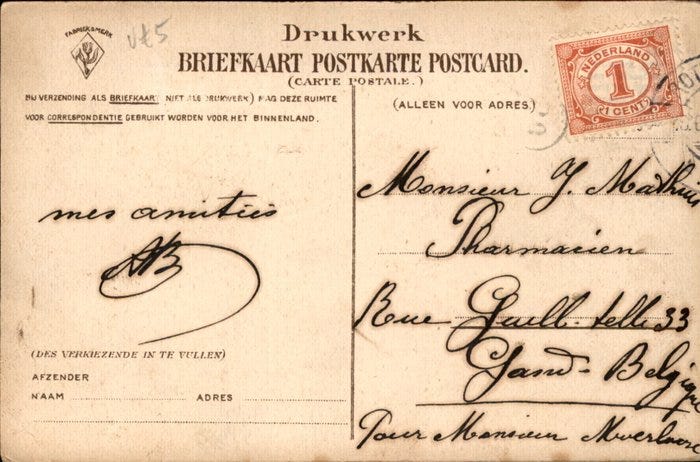 FABRIEKSMERK
vt5
Drukwerk
BRIEFKAART POSTKARTE POSTCARD.
(CARTE POSTALE.)
NEDERLAND
1
1 CENT
BIJ VERZENDING ALS BRIEFKAART (NIET ALS DRUKWERK) MAG DEZE RUIMTE
VOOR CORRESPONDENTIE GEBRUIKT WORDEN VOOR HET BINNENLAND.
(ALLEEN VOOR ADRES)
mes amitiés
AB
Monsieur J. Mathieu
Pharmacien
Rue Guill. telle 33
Gand - Belgique
Pour Monsieur
(DES VERKIEZENDE IN TE VULLEN)
AFZENDER
NAAM
ADRES